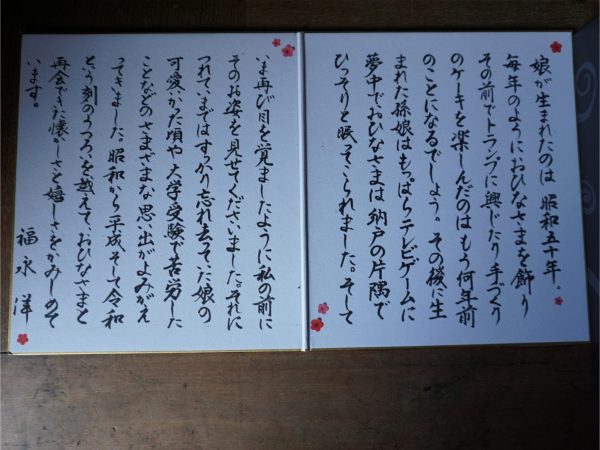 娘が生まれたのは 昭和五十年。
毎年のように、おひなさまを飾り
その前でトランプに興じたり 手づくり
のケーキを楽しんだのは もう何年前
のことになるでしょう。その後に生
まれた孫娘はもっぱらテレビゲームに
夢中でおひなさまは 納戸の片隅で
ひっそりと眠ってこられました。そして
いま再び目を覚ましたように 私の前に
そのお姿を見せてくださいました。それに
つれていまではすっかり忘れ去ってた娘の
可愛いかった頃や 大学受験で苦労した
ことなどのさまざまな思い出がよみがえ
ってきました。昭和から平成そして令和
という刻のうつろいを越えて、おひなさまと
再会できた懐かしさと嬉しさをかみしめて
います。
福永 洋